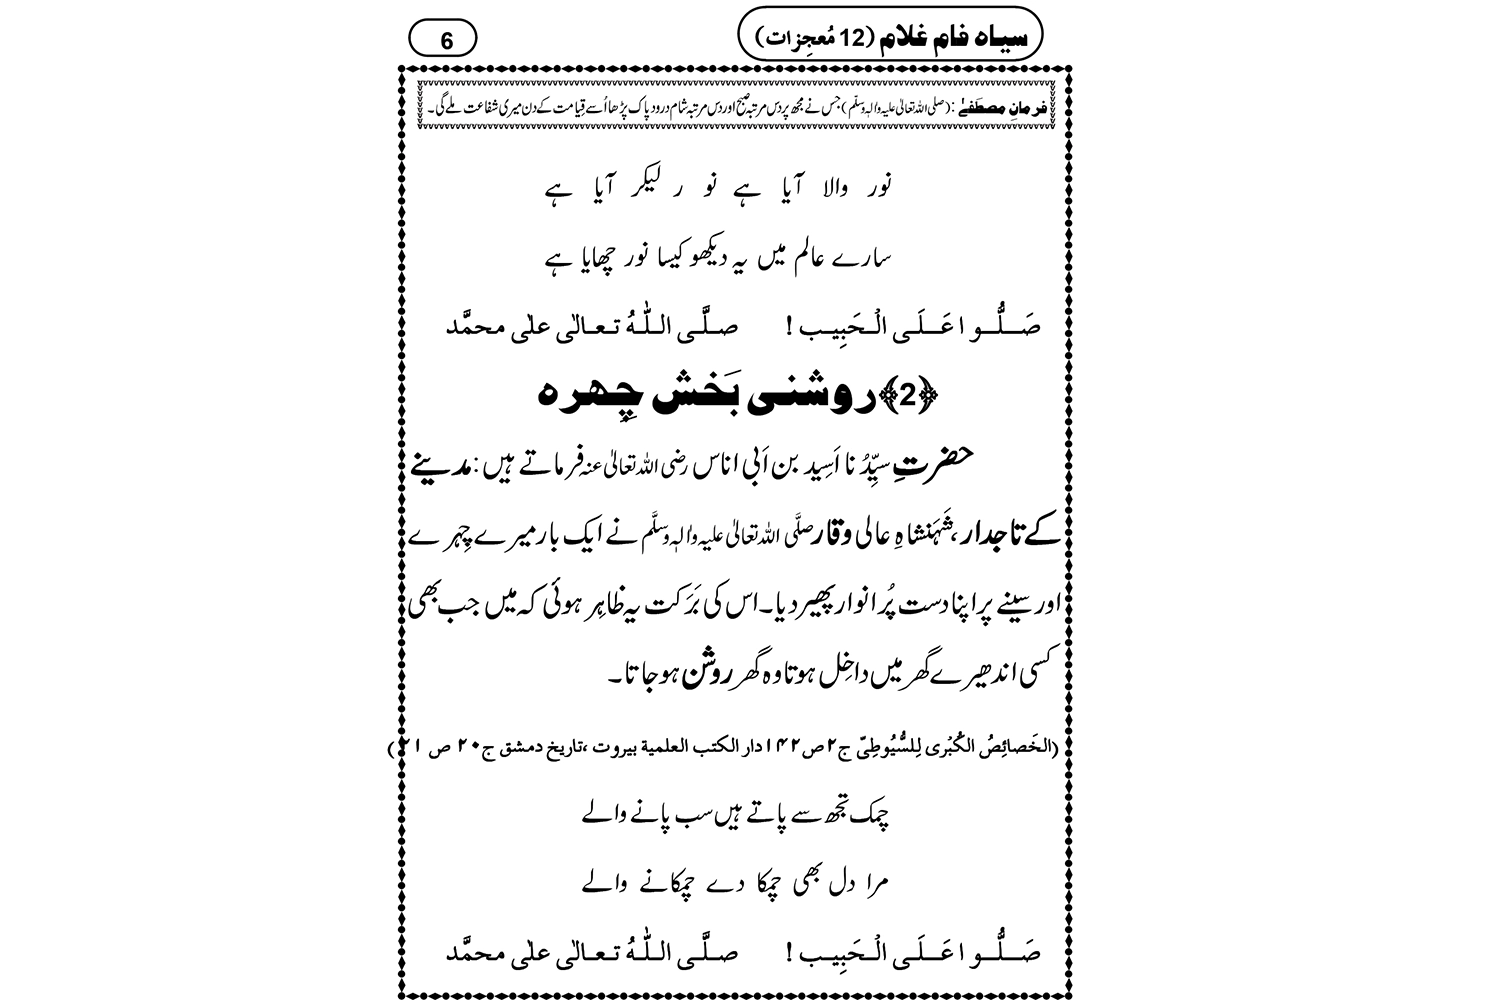 سیاہ فام غلام (12 مُعجِزات)
6
فرمانِ مصطَفےٰ : (صلی اللہ تعالیٰ علیہ واٰلہٖ وسلّم) جس نے مجھ پر دس مرتبہ صبح اور دس مرتبہ شام درود پاک پڑھا اُسے قِیامت کے دن میری شفاعت ملے گی۔
نور والا آیا ہے نو ر لیکر آیا ہے
سارے عالم میں یہ دیکھو کیسا نور چھایا ہے
صَلُّوا عَلَی الْحَبِیب ! صلَّی اللّٰہُ تعالٰی علٰی محمَّد
﴿2﴾ روشنی بَخش چِہرہ
حضرتِ سیِّدُنا اَسِید بن اَبی اناس رضی اللہ تعالیٰ عنہ فرماتے ہیں: مدینے
کے تاجدار، شَہَنشاہِ عالی وقار صلَّی اللہ تعالیٰ علیہ واٰلہٖ وسلَّم نے ایک بار میرے چِہرے
اور سینے پر اپنا دست پُر انوار پھیر دیا۔ اس کی بَرَکت یہ ظاہِر ہوئی کہ میں جب بھی
کسی اندھیرے گھر میں داخِل ہوتا وہ گھر روشن ہو جاتا۔
(الخَصائِصُ الکُبْری لِلسُّیُوطِیّ ج۲ص۱۴۲ دار الکتب العلمیة بیروت ،تاریخ دمشق ج۲۰ ص ۲۱)
چمک تجھ سے پاتے ہیں سب پانے والے
مرا دل بھی چمکا دے چمکانے والے
صَلُّوا عَلَی الْحَبِیب ! صلَّی اللّٰہُ تعالٰی علٰی محمَّد